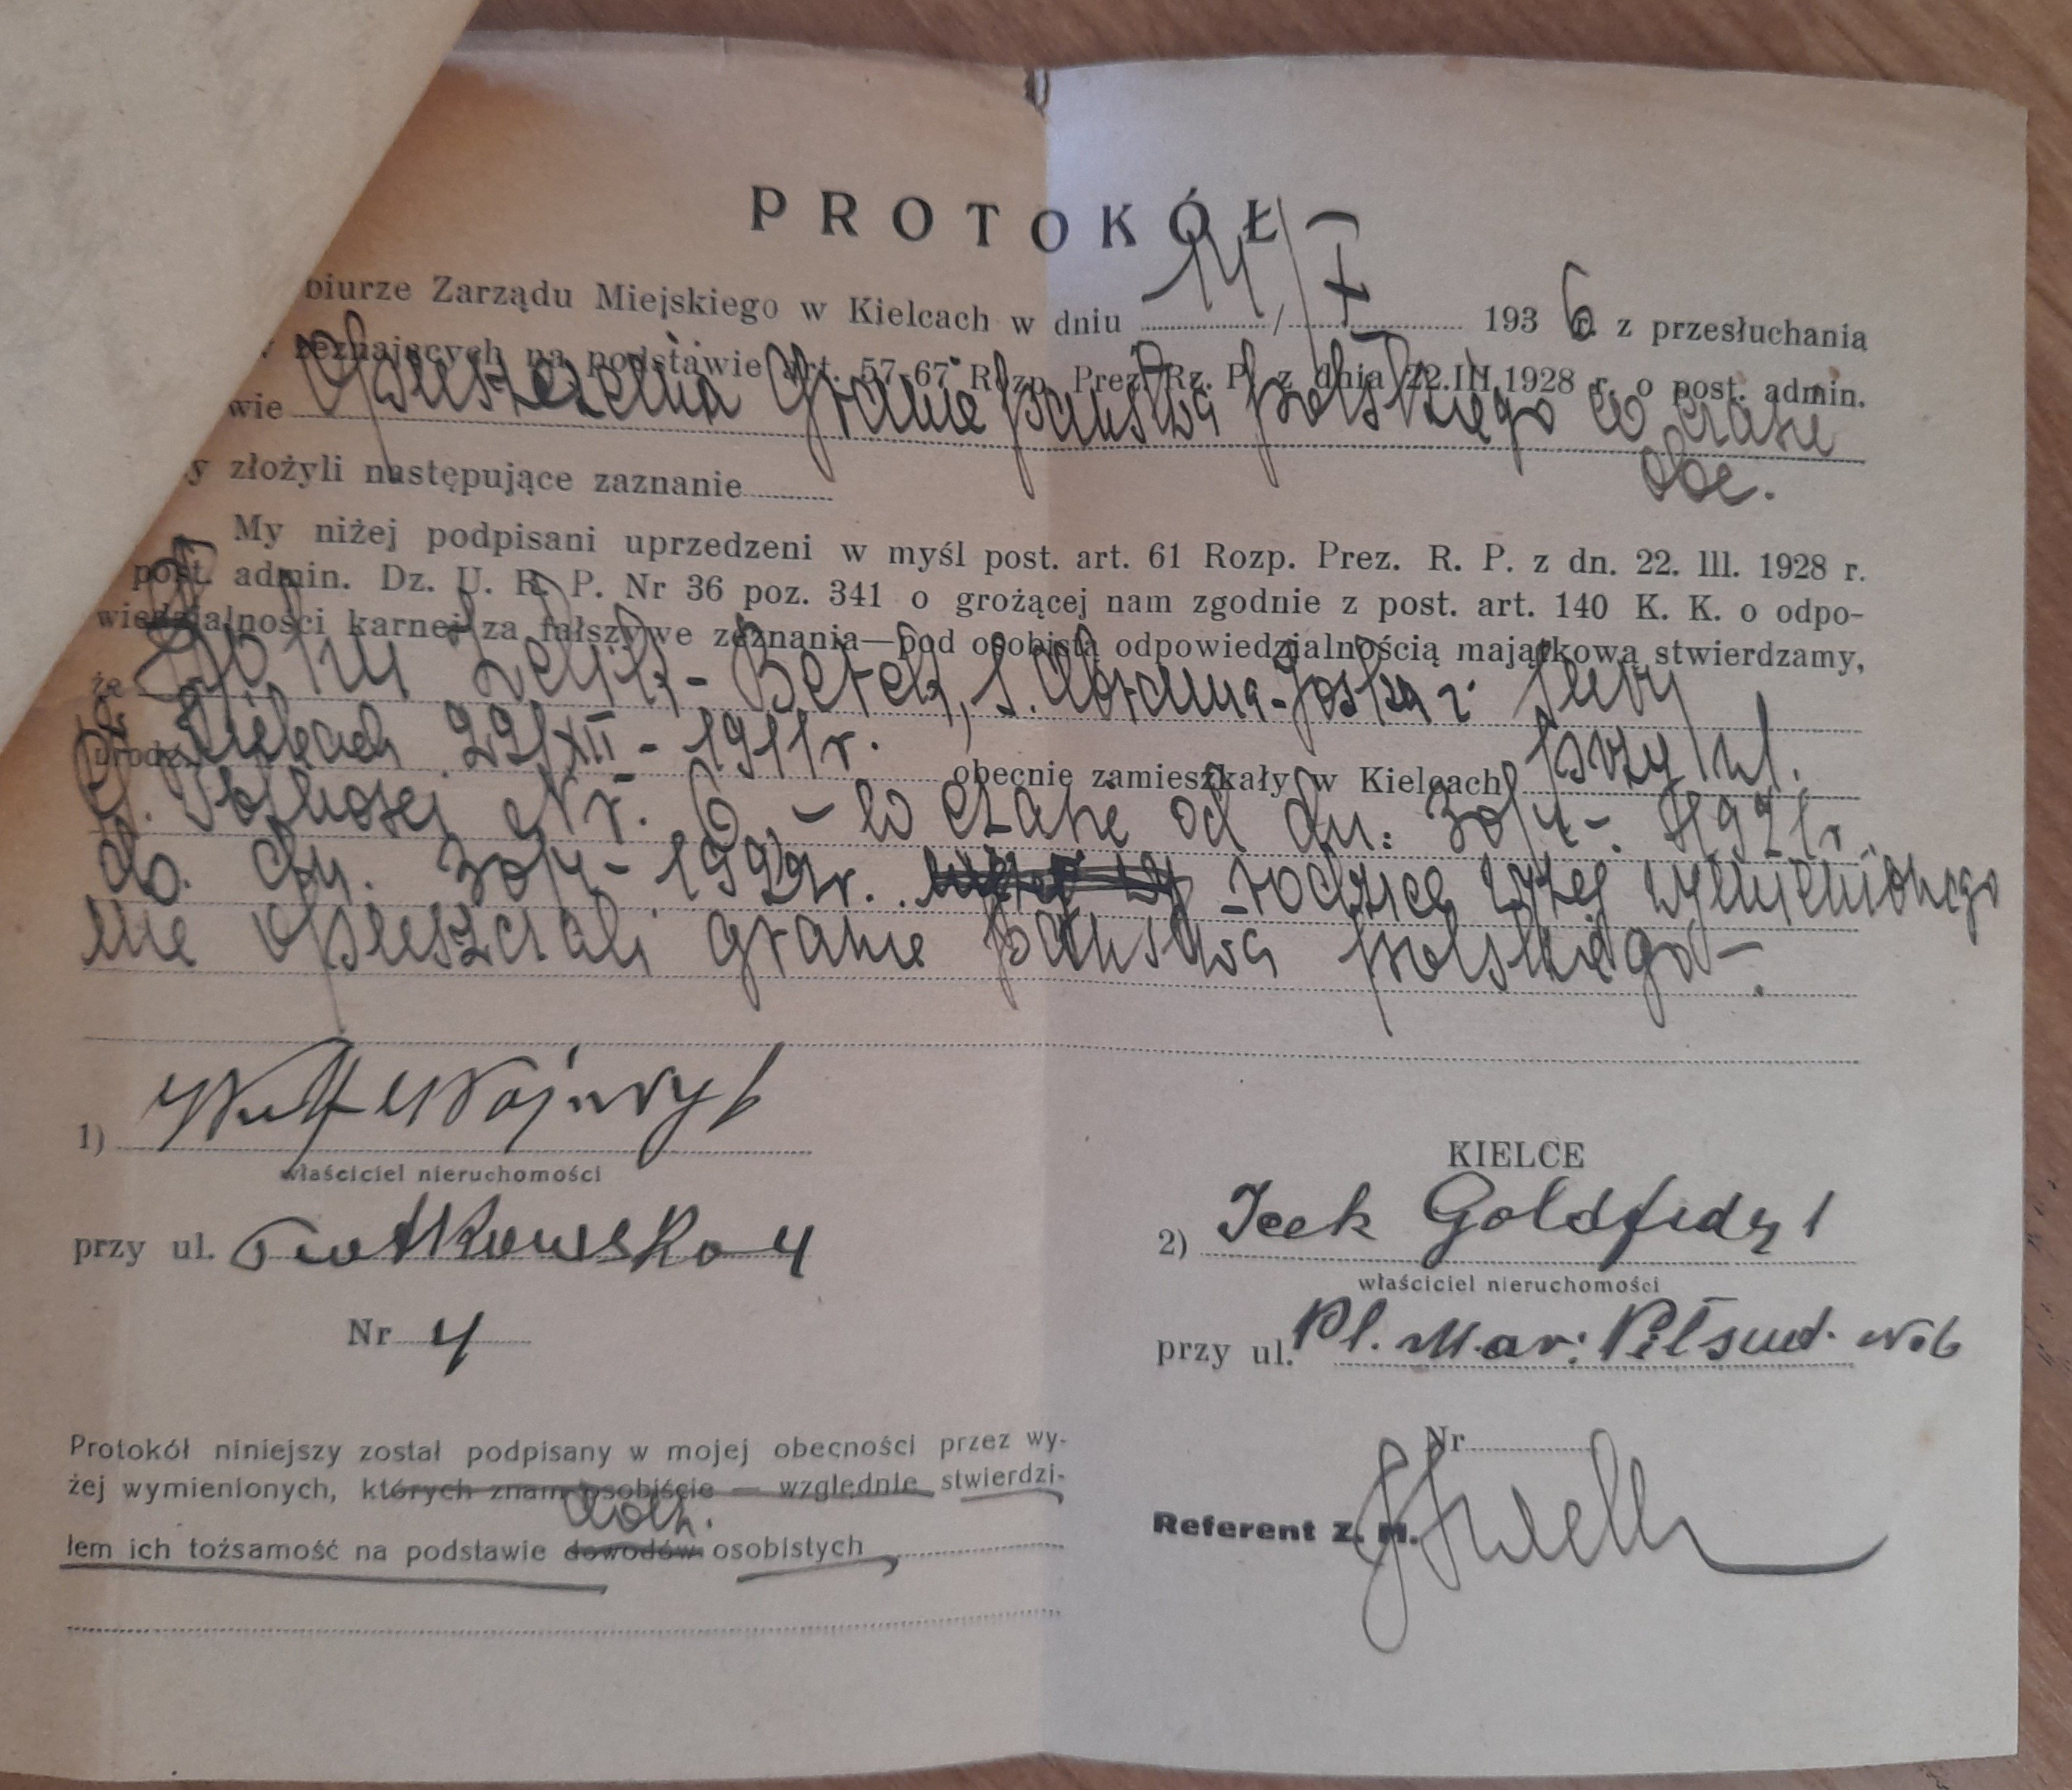 PROTOKÓŁ
biurze Zarządu Miejskiego w Kielcach w dniu 14/X 1936 r. z przesłuchania
zeznających na podstawie art. 57-67 Rozp. Prez. Rz. P. z dnia 22.III.1928 r. o post. admin.
wie Opuszczenia Granic państwa polskiego w czasie
obc.
y złożyli następujące zaznanie
My niżej podpisani uprzedzeni w myśl post. art. 61 Rozp. Prez. R. P. z dn. 22. III. 1928 r.
post. admin. Dz. U. R. P. Nr 36 poz. 341 o grożącej nam zgodnie z post. art. 140 K. K. o odpo-
wiedzialności karnej za fałszywe zeznania—pod osobistą odpowiedzialnością majątkową stwierdzamy,
że Berek, s.
urodz. Kielcach 22/XII - 1911 r. obecnie zamieszkały w Kielcach przy ul.
Nr. 6 - w czasie od dn: 30/4 - 1921 r.
do dn. 30/4 - 1922 r. rodzice wyżej wymienionego
nie opuszczali granic państwa polskiego -.
1)
właściciel nieruchomości
KIELCE
przy ul. 4
2) Icek
właściciel nieruchomości
Nr 4
przy ul. Pl. Mar: Piłsud. No 6
Nr
Protokół niniejszy został podpisany w mojej obecności przez wy-
żej wymienionych, których znam osobiście — względnie stwierdzi-
łem ich tożsamość na podstawie dowodów osobistych
Referent Z. M.